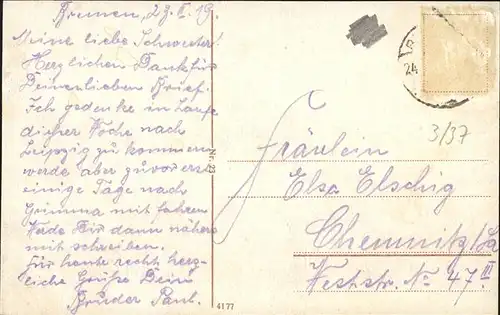 Bremen, 23.II.19.
Meine liebe Schwester!
Herzlichen Dank für
Deinen lieben Brief.
Ich gedenke in Laufe
dieser Woche nach
Leipzig zu kommen
werde aber zuvor erst
einige Tage nach
Grimma mit fahren
Werde Dir dann näheres
mit schreiben.
Für heute recht herz-
liche Grüße Dein
Bruder Paul.
24
3/37
Nr. 23
Fräulein
Elsa Elschig
Chemnitz/Sa
Weststr. No 47 III
4177